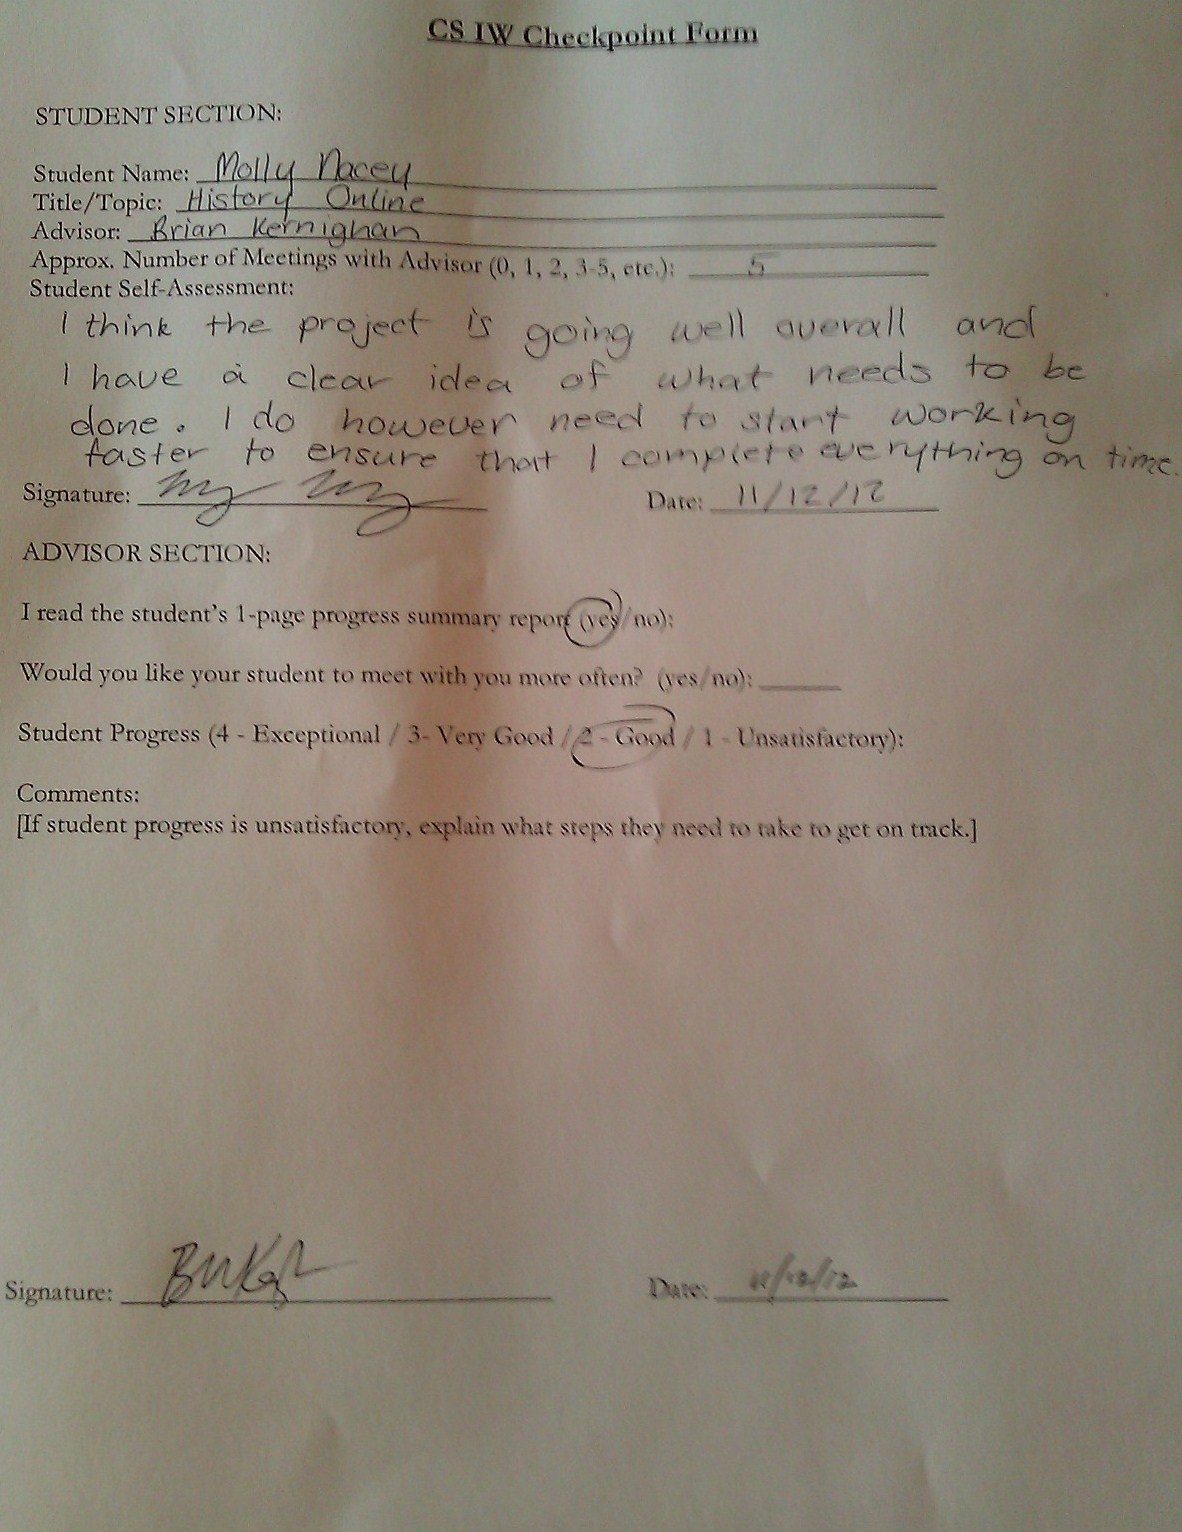 CS IW Checkpoint Form
STUDENT SECTION:
Student Name: Molly Nacey
Title/Topic: History Online
Advisor: Brian Kernighan
Approx. Number of Meetings with Advisor (0, 1, 2, 3-5, etc.): 5
Student Self-Assessment:
I think the project is going well overall and
I have a clear idea of what needs to be
done. I do however need to start working
faster to ensure that I complete everything on time.
Signature: Date: 11/12/12
ADVISOR SECTION:
I read the student's 1-page progress summary report (yes/no):
Would you like your student to meet with you more often? (yes/no):
Student Progress (4 - Exceptional / 3- Very Good / 2 - Good / 1 - Unsatisfactory):
Comments:
[If student progress is unsatisfactory, explain what steps they need to take to get on track.]
Signature: Date: 11/12/12